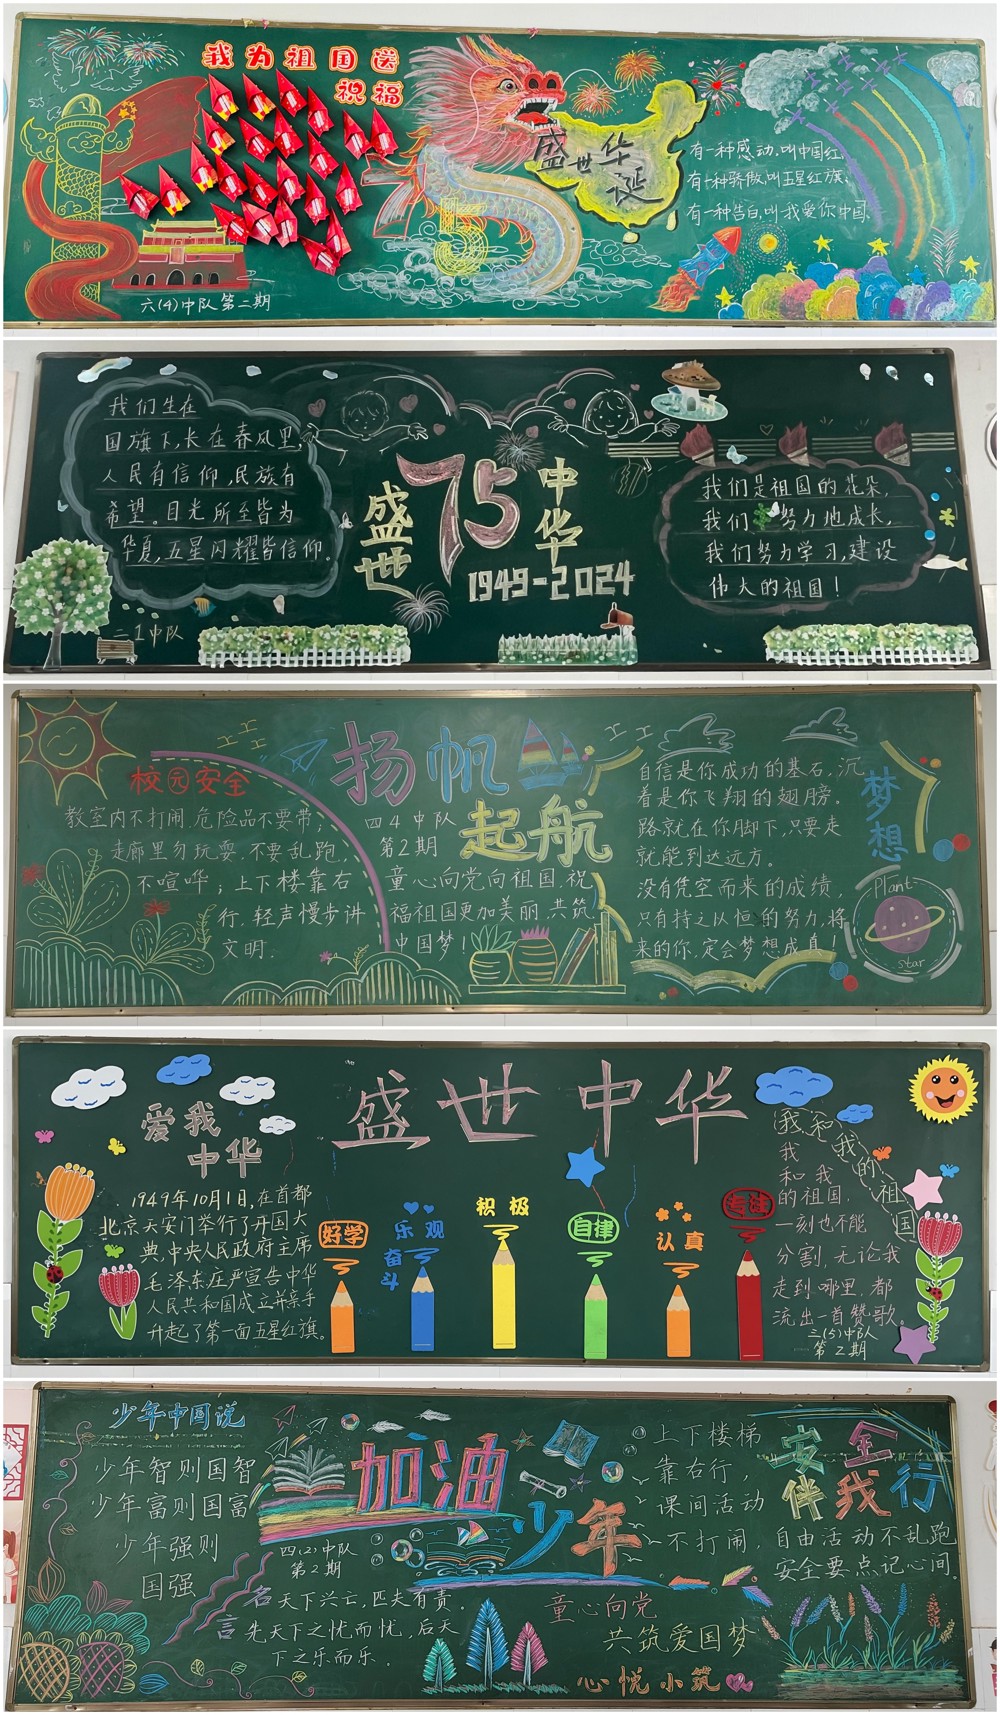 我为祖国送
祝福
盛世华诞
有一种感动,叫中国红,
有一种骄傲,叫五星红旗,
有一种告白,叫我爱你中国.
六(4)中队第二期
我们生在
国旗下,长在春风里,
人民有信仰,民族有
希望。目光所至皆为
华夏,五星闪耀皆信仰.
二1中队
盛世
75
中华
1949-2024
我们是祖国的花朵,
我们努力地成长,
我们努力学习,建设
伟大的祖国!
校园安全
教室内不打闹.危险品不要带;
走廊里勿玩耍.不要乱跑,
不喧哗;上下楼靠右
行.轻声慢步讲
文明.
扬帆
起航
四4中队
第2期
童心向党向祖国,祝
福祖国更加美丽.共筑
中国梦!
自信是你成功的基石,沉
着是你飞翔的翅膀。
路就在你脚下,只要走
就能到达远方。
没有凭空而来的成绩,
只有持之以恒的努力,将
来的你,定会梦想成真!
梦想
Plant-
star
爱我
中华
1949年10月1日,在首都
北京天安门举行了开国大
典,中央人民政府主席
毛泽东庄严宣告中华
人民共和国成立并亲手
升起了第一面五星红旗。
盛世中华
好学
乐观
奋斗
积极
自律
认真
专注
我和我的祖国
我
和我
的祖国,
一刻也不能
分割,无论我
走到哪里,都
流出一首赞歌。
三(5)中队
第2期
少年中国说
少年智则国智
少年富则国富
少年强则
国强
加油
少年
四(2)中队
第2期
名言
天下兴亡,匹夫有责.
先天下之忧而忧,后天
下之乐而乐.
上下楼梯
靠右行,
课间活动
不打闹,
安全
伴我行
自由活动不乱跑
安全要点记心间.
童心向党
共筑爱国梦
心悦小筑